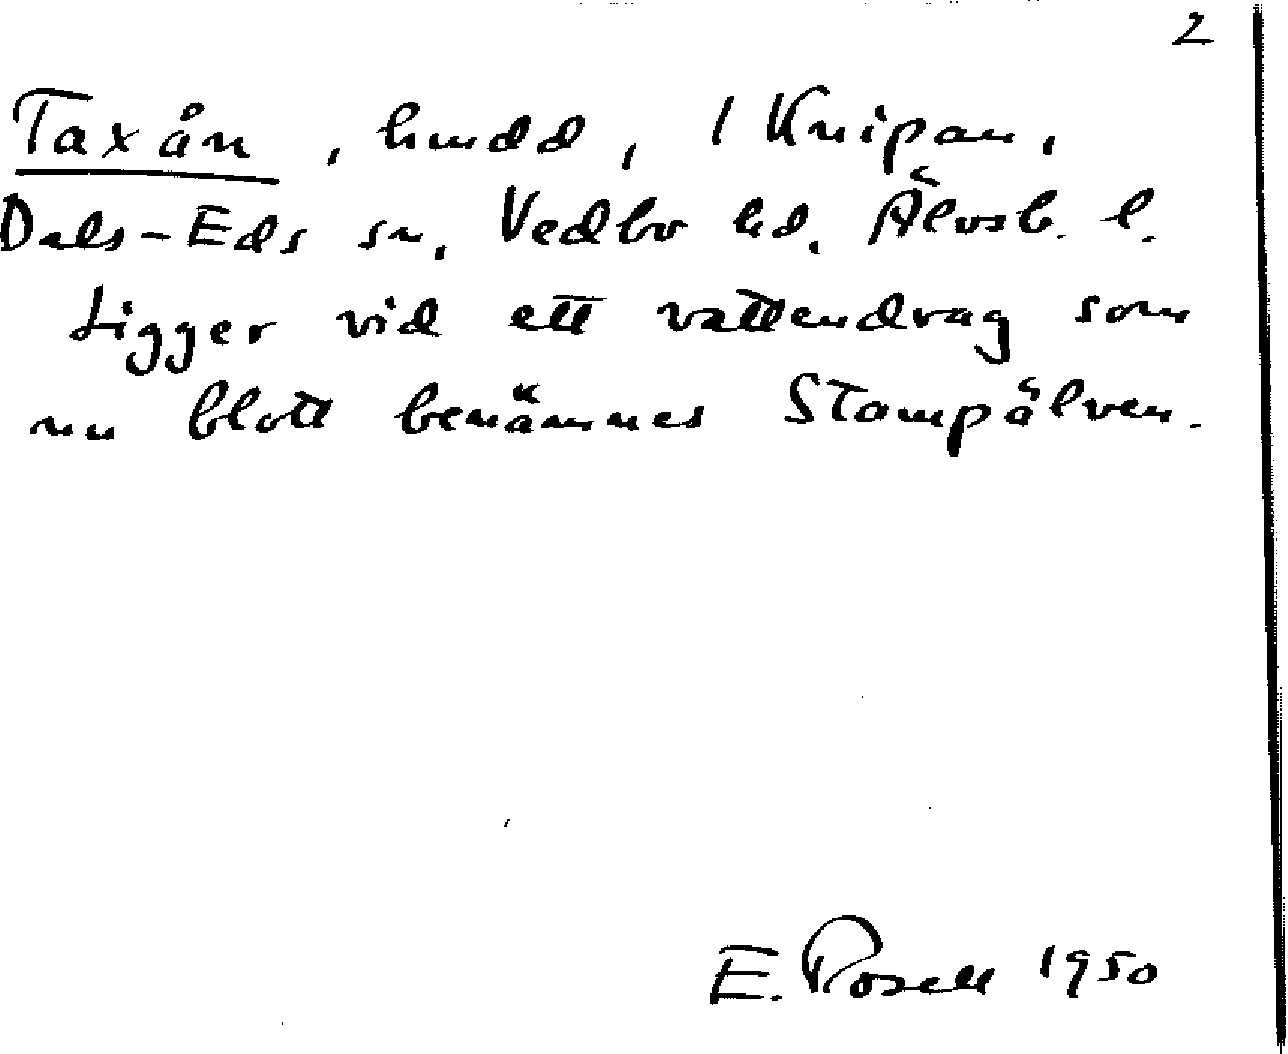 2
Taxån, hmdd, 1 Knipan,
Dals-Eds sn, Vedbo hd. Älvsb. l.
Ligger vid ett vattendrag som
nu blott benämnes Stampälven.
E. Rosell 1950